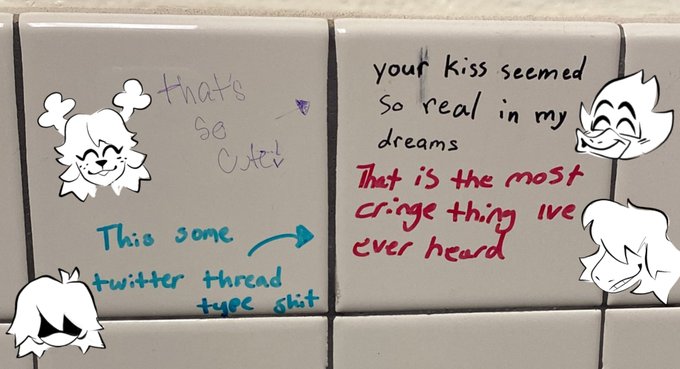 that's
so
cute!
your kiss seemed
so real in my
dreams
That is the most
cringe thing ive
ever heard
This some
twitter thread
type shit